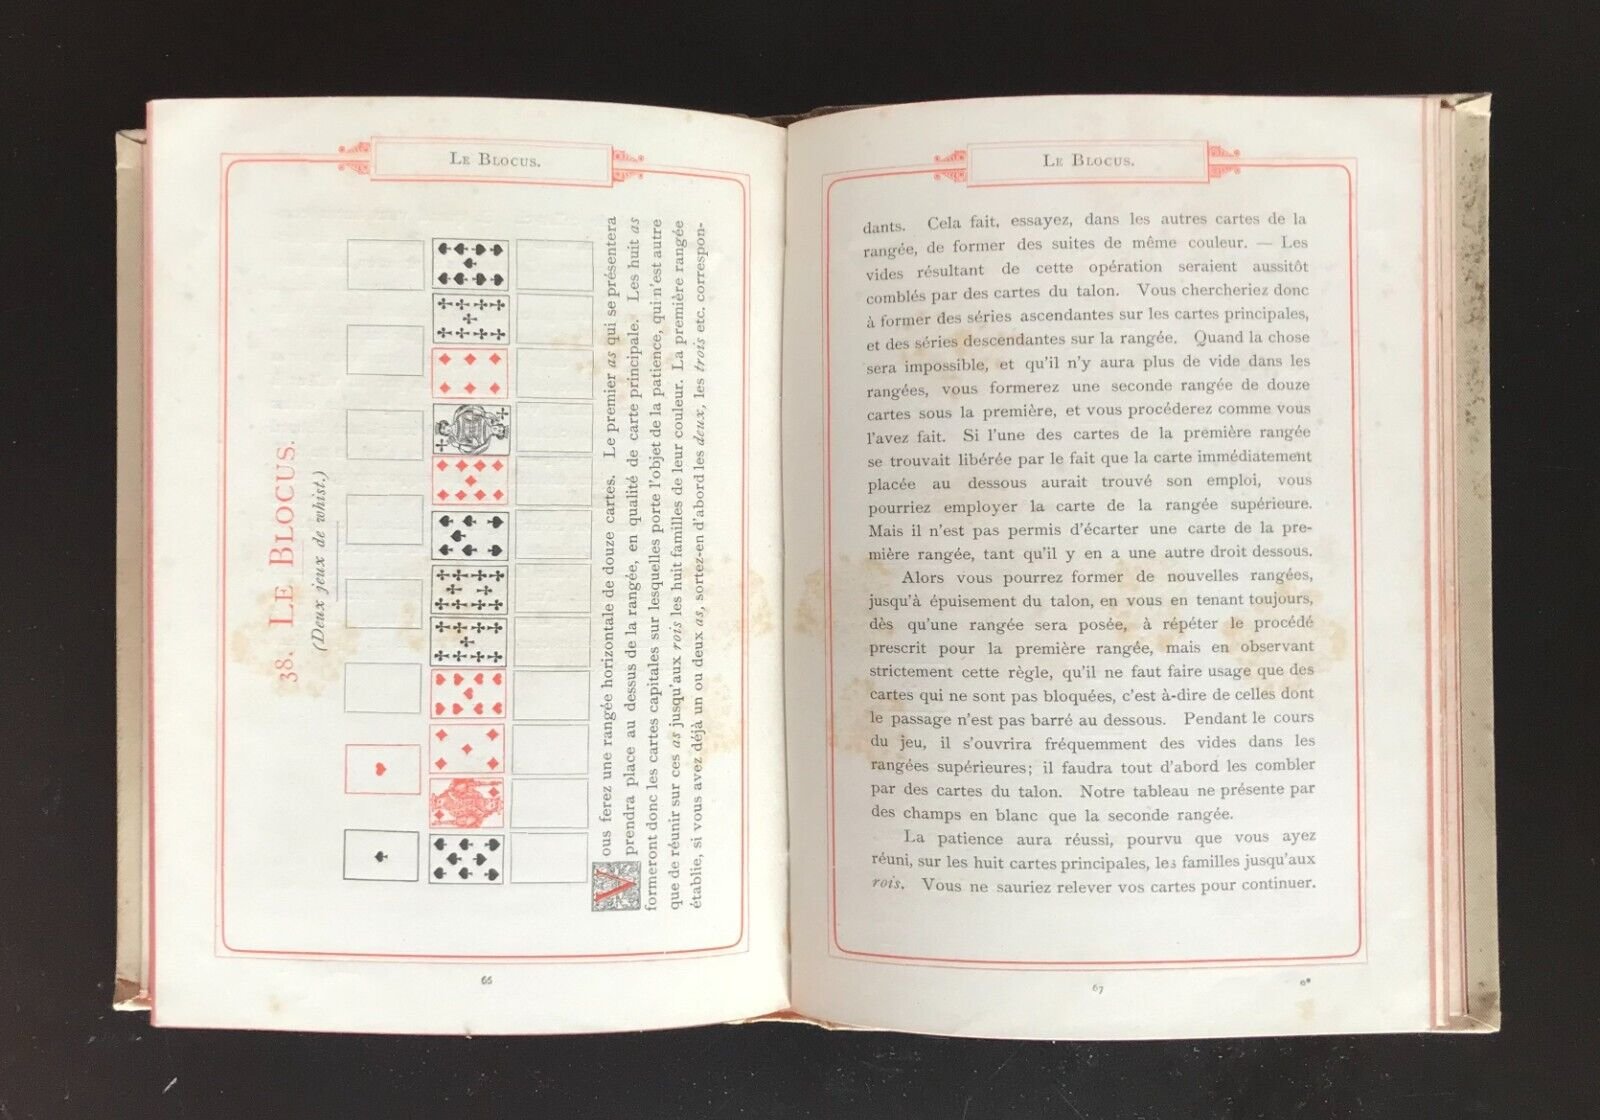 LE BLOCUS.
38. LE BLOCUS.
(Deux jeux de whist.)
Vous ferez une rangée horizontale de douze cartes. Le premier as qui se présentera
prendra place au dessus de la rangée, en qualité de carte principale. Les huit as
formeront donc les cartes capitales sur lesquelles porte l'objet de la patience, qui n'est autre
que de réunir sur ces as jusqu'aux rois les huit familles de leur couleur. La première rangée
établie, si vous avez déjà un ou deux as, sortez-en d'abord les deux, les trois etc. correspon-
66
LE BLOCUS.
dants. Cela fait, essayez, dans les autres cartes de la
rangée, de former des suites de même couleur. — Les
vides résultant de cette opération seraient aussitôt
comblés par des cartes du talon. Vous chercheriez donc
à former des séries ascendantes sur les cartes principales,
et des séries descendantes sur la rangée. Quand la chose
sera impossible, et qu'il n'y aura plus de vide dans les
rangées, vous formerez une seconde rangée de douze
cartes sous la première, et vous procéderez comme vous
l'avez fait. Si l'une des cartes de la première rangée
se trouvait libérée par le fait que la carte immédiatement
placée au dessous aurait trouvé son emploi, vous
pourriez employer la carte de la rangée supérieure.
Mais il n'est pas permis d'écarter une carte de la pre-
mière rangée, tant qu'il y en a une autre droit dessous.
Alors vous pourrez former de nouvelles rangées,
jusqu'à épuisement du talon, en vous en tenant toujours,
dès qu'une rangée sera posée, à répéter le procédé
prescrit pour la première rangée, mais en observant
strictement cette règle, qu'il ne faut faire usage que des
cartes qui ne sont pas bloquées, c'est à-dire de celles dont
le passage n'est pas barré au dessous. Pendant le cours
du jeu, il s'ouvrira fréquemment des vides dans les
rangées supérieures; il faudra tout d'abord les combler
par des cartes du talon. Notre tableau ne présente par
des champs en blanc que la seconde rangée.
La patience aura réussi, pourvu que vous ayez
réuni, sur les huit cartes principales, les familles jusqu'aux
rois. Vous ne sauriez relever vos cartes pour continuer.
67